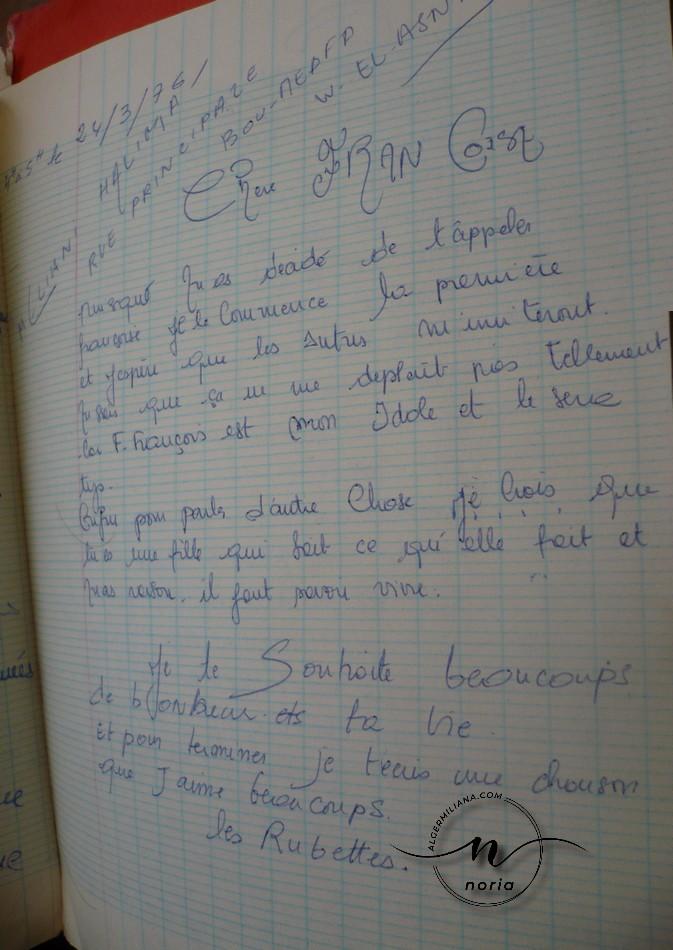 24/3/76
MILIANI HALIMA
RUE PRINCIPALE
BOU-MEDFA
W. EL-ASN
Chère FRANÇOISE
puisque tu as décidé de t'appeler
françoise je le commence la première
et j'espère que les autres m'imiteront.
tu sais que ça ne me deplait pas tellement
car F. François est mon Idole et le seul
typ.
Enfin pour parler d'autre chose je crois que
tu es une fille qui sait ce qu'elle fait et
tu as raison. il faut savoir vivre.
Je te Souhaite beaucoups
de bonheur ds ta vie.
Et pour terminer je t'écris une chanson
que J'aime beaucoups.
les Rubettes.
ALGERMILIANA.COM
n
noria